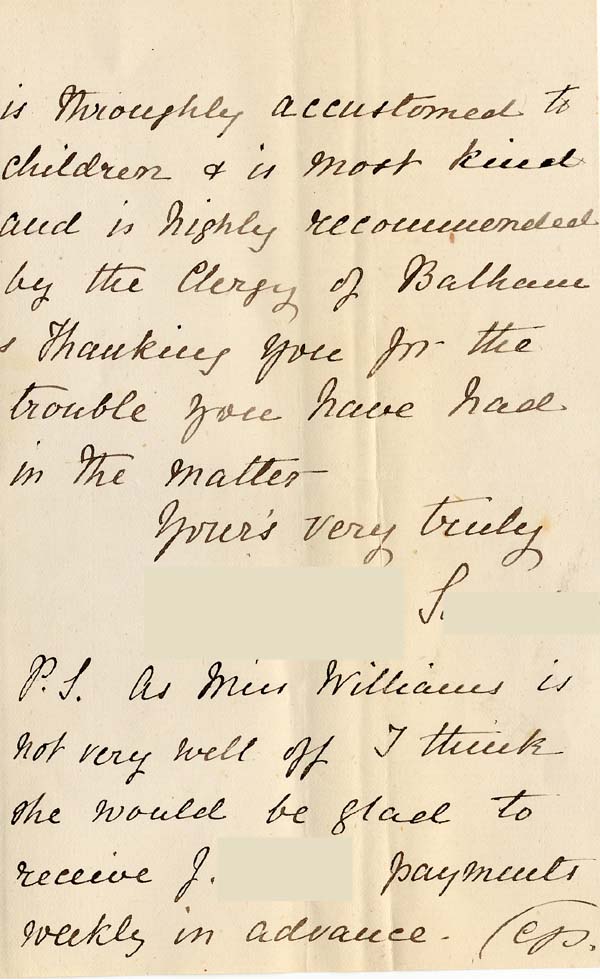 is throughly accustomed to
children & is most kind
and is highly recommended
by the Clergy of Balham
s Thanking you for the
trouble you have had
in the matter
Your's very truly
S.
P.S. As Miss Williams is
not very well off I think
she would be glad to
receive J. payments
weekly in advance.